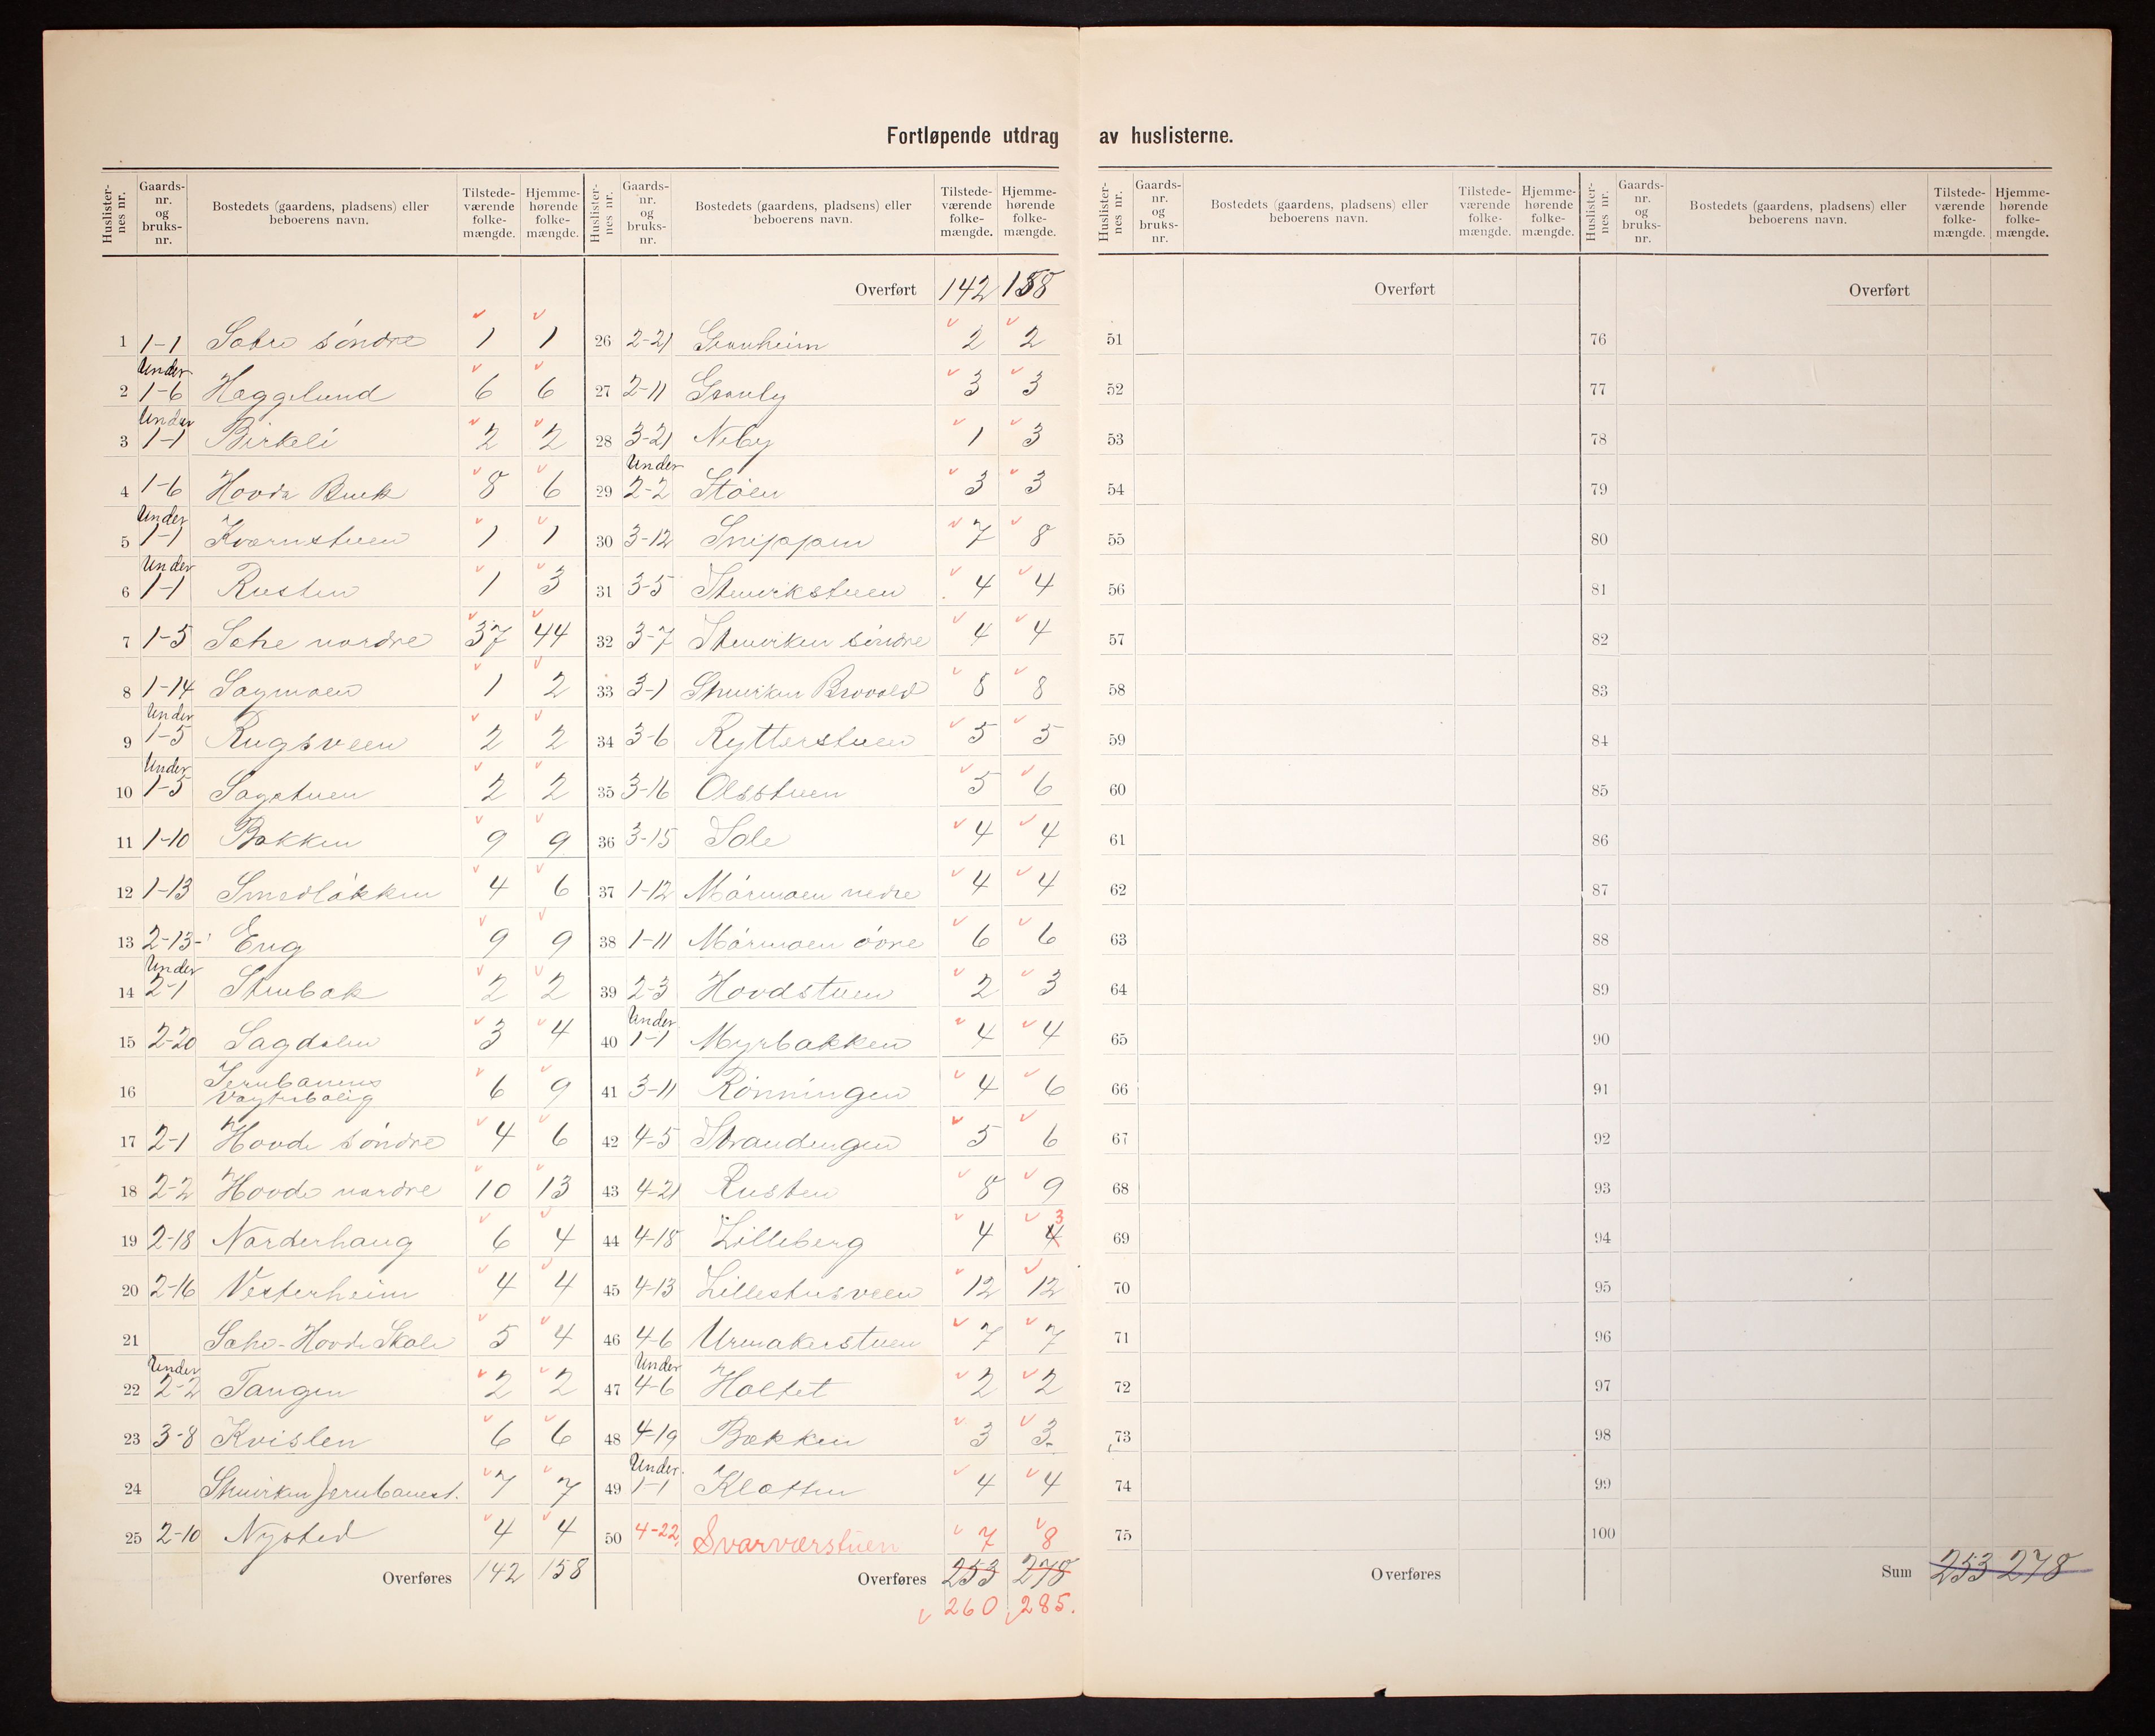 Fortløpende utdrag av huslisterne.
Huslister-nes nr. | Gaards-nr. og bruks-nr. | Bostedets (gaardens, pladsens) eller beboerens navn. | Tilstede-værende folke-mængde. | Hjemme-hørende folke-mængde.
1 1-1 Søhre søndre 1 1
2 Under 1-6 Haggelund 6 6
3 Under 1-1 Birkeli 2 2
4 1-6 Hovde Bruk 8 6
5 Under 1-1 Kværnstuen 1 1
6 Under 1-1 Rusten 1 3
7 1-5 Søhre nordre 37 44
8 1-14 Sagmoen 1 2
9 Under 1-5 Rugsveen 2 2
10 Under 1-5 Sagstuen 2 2
11 1-10 Bakken 9 9
12 1-13 Smedløkken 4 6
13 2-13- Eng 9 9
14 Under 2-1 Stubak 2 2
15 2-20 Sagdalen 3 4
16 Jernbanens
Vogterbolig 6 9
17 2-1 Hovde søndre 4 6
18 2-2 Hovde nordre 10 13
19 2-18 Norderhaug 6 4
20 2-16 Vesterheim 4 4
21 Hovde Skole 5 4
22 Under 2-2 Tangen 2 2
23 3-8 Kvislen 6 6
24 Stuvirken Jernbanest. 7 7
25 2-10 Nysted 4 4
Overføres 142 158
Huslister-nes nr. | Gaards-nr. og bruks-nr. | Bostedets (gaardens, pladsens) eller beboerens navn. | Tilstede-værende folke-mængde. | Hjemme-hørende folke-mængde.
Overført 142 158
26 2-21 Granheim 2 2
27 2-11 Granly 3 3
28 3-21 Neby 1 3
29 Under 2-2 Støen 3 3
30 3-12 Snippen 7 8
31 3-5 Stuvirkstuen 4 4
32 3-7 Stuvirken søndre 4 4
33 3-1 Stuvirken Brovold 8 8
34 3-6 Rytterstuen 5 5
35 3-16 Olsstuen 5 6
36 3-15 Sole 4 4
37 1-12 Mørmoen nedre 4 4
38 1-11 Mørmoen øvre 6 6
39 2-3 Hovdstuen 2 3
40 Under 1-1 Myrbakken 4 4
41 3-11 Rønningen 4 6
42 4-5 Strandengen 5 6
43 4-21 Rusten 8 9
44 4-18 Lilleberg 4 4 3
45 4-13 Lillestusveen 12 12
46 4-6 Urmakerstuen 7 7
47 Under 4-6 Holtet 2 2
48 4-19 Bakken 3 3
49 Under 1-1 Kløften 4 4
50 4-22, Svarværstuen 7 8
Overføres 253 278
260 285.
Huslister-nes nr. | Gaards-nr. og bruks-nr. | Bostedets (gaardens, pladsens) eller beboerens navn. | Tilstede-værende folke-mængde. | Hjemme-hørende folke-mængde.
Overført
51
52
53
54
55
56
57
58
59
60
61
62
63
64
65
66
67
68
69
70
71
72
73
74
75
Overføres
Huslister-nes nr. | Gaards-nr. og bruks-nr. | Bostedets (gaardens, pladsens) eller beboerens navn. | Tilstede-værende folke-mængde. | Hjemme-hørende folke-mængde.
Overført
76
77
78
79
80
81
82
83
84
85
86
87
88
89
90
91
92
93
94
95
96
97
98
99
100
Sum 253 278